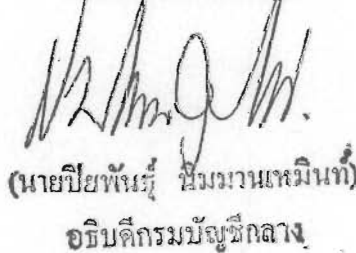 (นายปิยพันธุ์ นิมมานเหมินท์)
อธิบดีกรมบัญชีกลาง